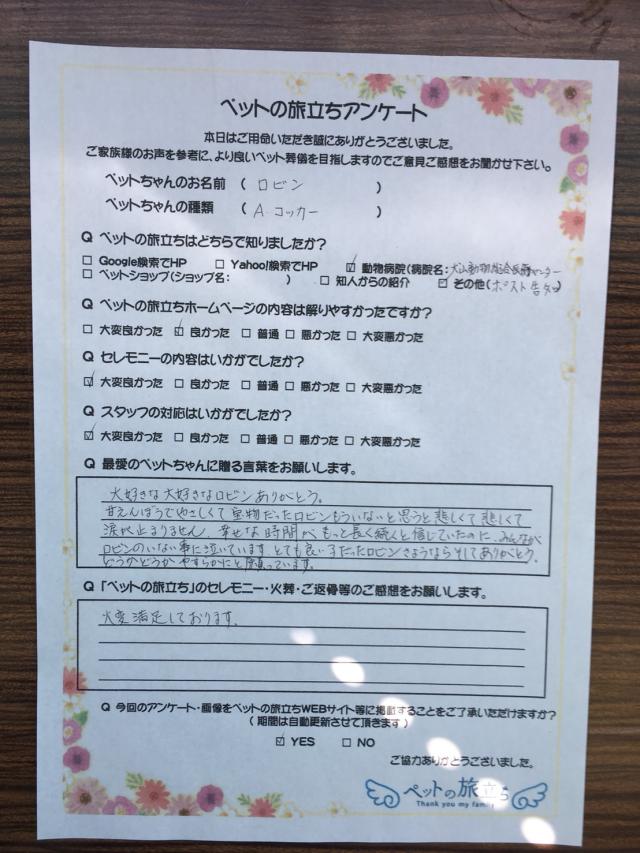 ペットの旅立ちアンケート
本日はご用命いただき誠にありがとうございました。
ご家族様のお声を参考に、より良いペット葬儀を目指しますのでご意見ご感想をお聞かせ下さい。
ペットちゃんのお名前 ( ロビン )
ペットちゃんの種類 ( A.コッカー )
Q ペットの旅立ちはどちらで知りましたか?
□ Google検索でHP □ Yahoo!検索でHP ☑ 動物病院(病院名:犬山動物総合医療センター
□ ペットショップ(ショップ名: ) □ 知人からの紹介 ☑ その他(ポスト
Q ペットの旅立ちホームページの内容は解りやすかったですか?
□ 大変良かった ☑ 良かった □ 普通 □ 悪かった □ 大変悪かった
Q セレモニーの内容はいかがでしたか?
☑ 大変良かった □ 良かった □ 普通 □ 悪かった □ 大変悪かった
Q スタッフの対応はいかがでしたか?
☑ 大変良かった □ 良かった □ 普通 □ 悪かった □ 大変悪かった
Q 最愛のペットちゃんに贈る言葉をお願いします。
大好きな大好きなロビンありがとう。
甘えんぼうでやさしくて宝物だったロビンもういないと思うと悲しくて悲しくて
涙が止まりません 幸せな時間がもっと長く続くと信じていたのに、みんなが
ロビンのいない事に泣いています とても良い子だったロビンさようならそしてありがとう。
どうかどうかやすらかにと願っています。
Q 「ペットの旅立ち」のセレモニー・火葬・ご返骨等のご感想をお願いします。
大変満足しております。
Q 今回のアンケート・画像をペットの旅立ちWEBサイト等に掲載することをご了承いただけますか?
( 期間は自動更新させて頂きます )
☑ YES □ NO
ご協力ありがとうございました。
ペットの旅立ち
Thank you my family